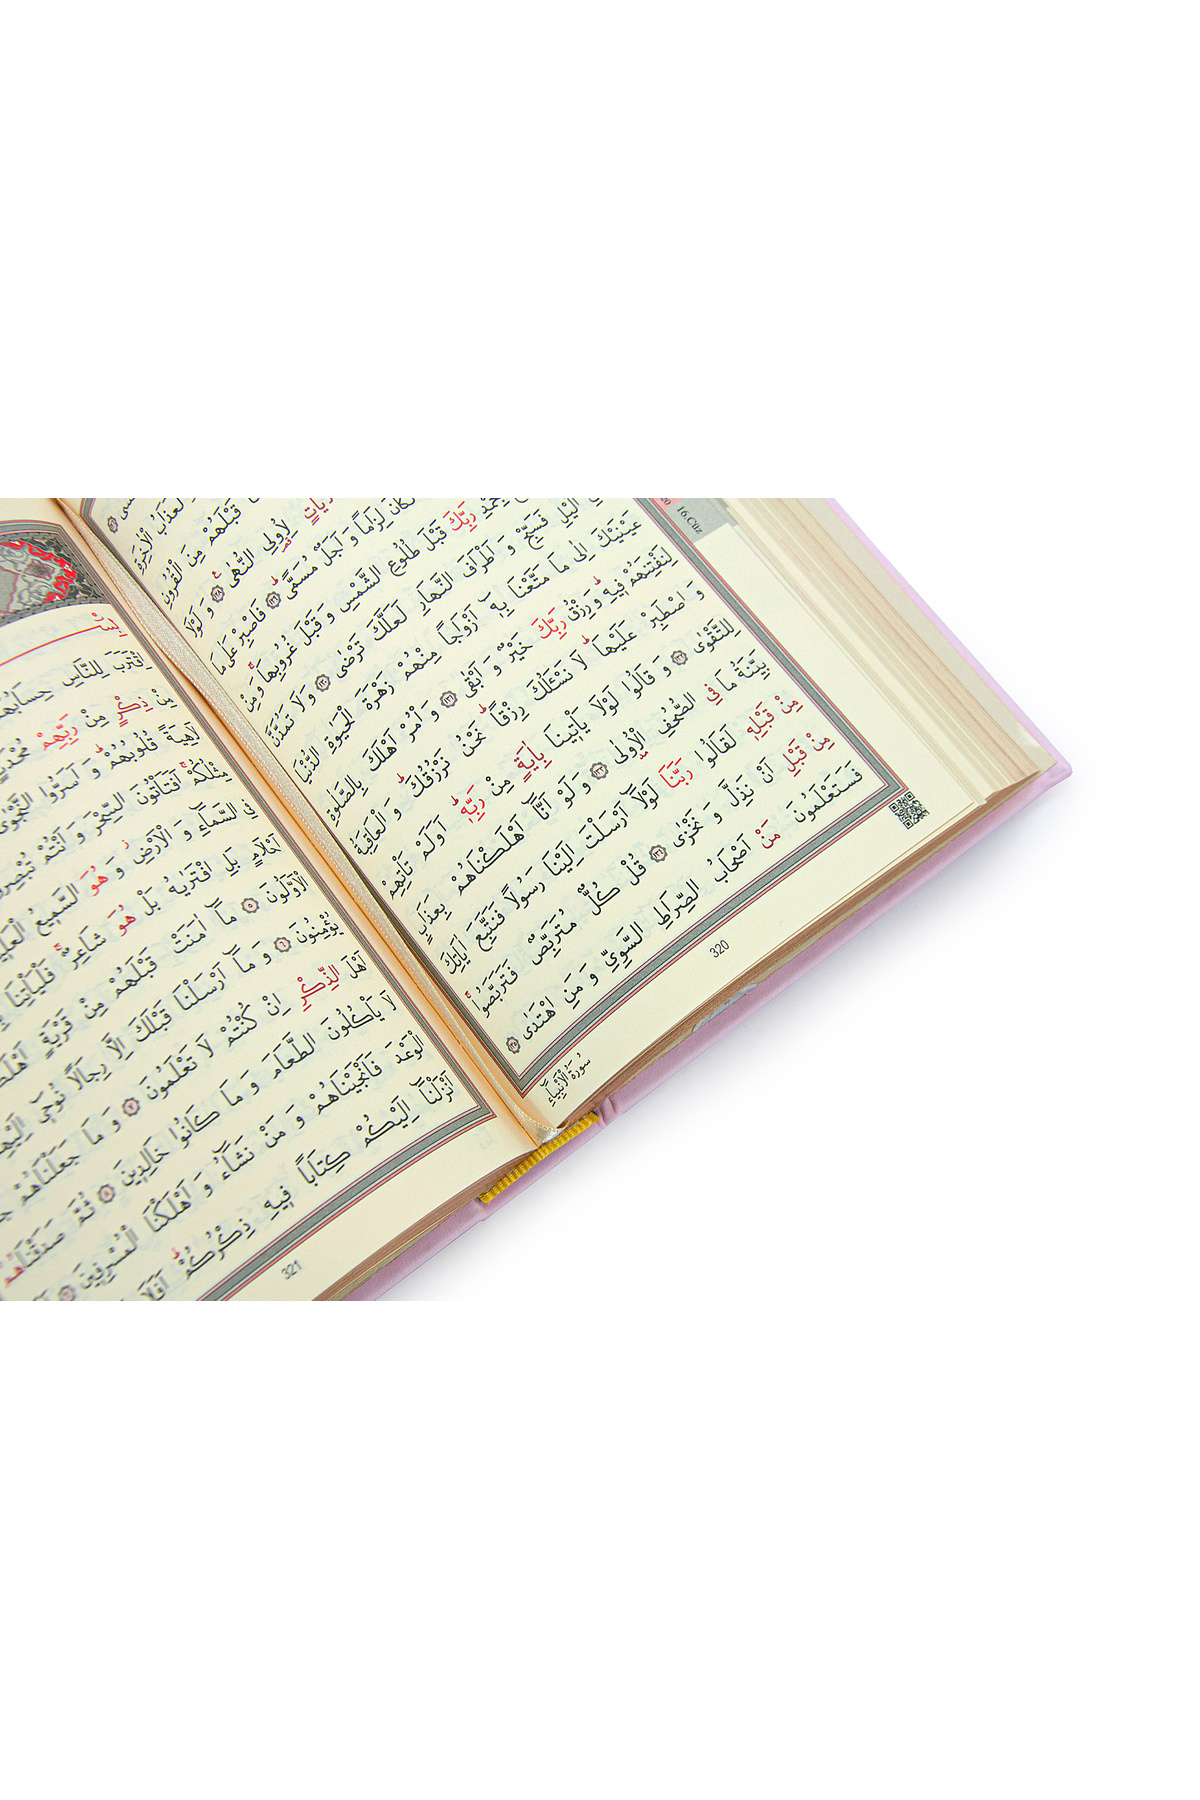 16.Cüz
لَعَذَابُ الْاٰخِرَةِ
قَبْلَهُمْ مِنَ الْقُرُونِ
لِاُو۬لِي النُّهٰى ﴿١٢٨﴾ وَلَوْلَا
لَكَانَ لِزَامًا وَاَجَلٌ مُسَمًّى ﴿١٢٩﴾ فَاصْبِرْ عَلٰى مَا
بِحَمْدِ رَبِّكَ قَبْلَ طُلُوعِ الشَّمْسِ وَقَبْلَ غُرُوبِهَا وَمِنْ
الَّيْلِ فَسَبِّحْ وَاَطْرَافَ النَّهَارِ لَعَلَّكَ تَرْضٰى ﴿١٣٠﴾ وَلَا تَمُدَّنَّ
عَيْنَيْكَ اِلٰى مَا مَتَّعْنَا بِه۪ٓ اَزْوَاجًا مِنْهُمْ زَهْرَةَ الْحَيٰوةِ الدُّنْيَا
لِنَفْتِنَهُمْ ف۪يهِ وَرِزْقُ رَبِّكَ خَيْرٌ وَاَبْقٰى ﴿١٣١﴾ وَأْمُرْ اَهْلَكَ بِالصَّلٰوةِ
وَاصْطَبِرْ عَلَيْهَا لَا نَسْـَٔلُكَ رِزْقًا نَحْنُ نَرْزُقُكَ وَالْعَاقِبَةُ
لِلتَّقْوٰى ﴿١٣٢﴾ وَقَالُوا لَوْلَا يَأْت۪ينَا بِاٰيَةٍ مِنْ رَبِّه۪ اَوَلَمْ تَأْتِهِمْ
بَيِّنَةُ مَا فِي الصُّحُفِ الْاُو۫لٰى ﴿١٣٣﴾ وَلَوْ اَنَّٓا اَهْلَكْنَاهُمْ بِعَذَابٍ
مِنْ قَبْلِه۪ لَقَالُوا رَبَّنَا لَوْلَٓا اَرْسَلْتَ اِلَيْنَا رَسُولًا فَنَتَّبِعَ اٰيَاتِكَ
مِنْ قَبْلِ اَنْ نَذِلَّ وَنَخْزٰى ﴿١٣٤﴾ قُلْ كُلٌّ مُتَرَبِّصٌ فَتَرَبَّصُوا
فَسَتَعْلَمُونَ مَنْ اَصْحَابُ الصِّرَاطِ السَّوِيِّ وَمَنِ اهْتَدٰى ﴿١٣٥﴾
320
سُورَةُ الْاَنْبِيَٓاءِ
اِقْتَرَبَ لِلنَّاسِ حِسَابُهُمْ
مِنْ ذِكْرٍ مِنْ رَبِّهِمْ مُحْدَثٍ
لَاهِيَةً قُلُوبُهُمْ وَاَسَرُّوا النَّجْوٰى
مِثْلُكُمْ اَفَتَأْتُونَ السِّحْرَ وَاَنْتُمْ تُبْصِرُونَ
فِي السَّمَٓاءِ وَالْاَرْضِ وَهُوَ السَّم۪يعُ الْعَل۪يمُ
اَحْلَامٍ بَلِ افْتَرٰيهُ بَلْ هُوَ شَاعِرٌ فَلْيَأْتِنَا
الْاَوَّلُونَ ﴿٥﴾ مَٓا اٰمَنَتْ قَبْلَهُمْ مِنْ قَرْيَةٍ
يُؤْمِنُونَ ﴿٦﴾ وَمَٓا اَرْسَلْنَا قَبْلَكَ اِلَّا رِجَالًا نُوح۪ٓي اِلَيْهِمْ
اَهْلَ الذِّكْرِ اِنْ كُنْتُمْ لَا تَعْلَمُونَ ﴿٧﴾ وَمَا جَعَلْنَاهُمْ
لَا يَأْكُلُونَ الطَّعَامَ وَمَا كَانُوا خَالِد۪ينَ ﴿٨﴾ ثُمَّ صَدَقْنَاهُمُ
الْوَعْدَ فَاَنْجَيْنَاهُمْ وَمَنْ نَشَٓاءُ وَاَهْلَكْنَا الْمُسْرِف۪ينَ ﴿٩﴾
اَنْزَلْنَٓا اِلَيْكُمْ كِتَابًا ف۪يهِ ذِكْرُكُمْ اَفَلَا
321